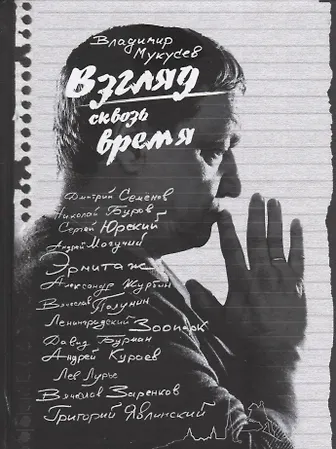 Владимир
Мукусев
Взгляд
сквозь
время
Дмитрий Семенов
Николай Буров
Сергей Юрский
Андрей Могучий
Эрмитаж
Александр Журбин
Вячеслав Полунин
Ленинградский Зоопарк
Давид Бурман
Андрей Кураев
Лев Лурье
Вячеслав Заренков
Григорий Явлинский